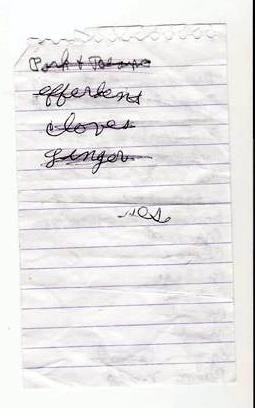 Pork + Beans
efferdent
cloves
ginger